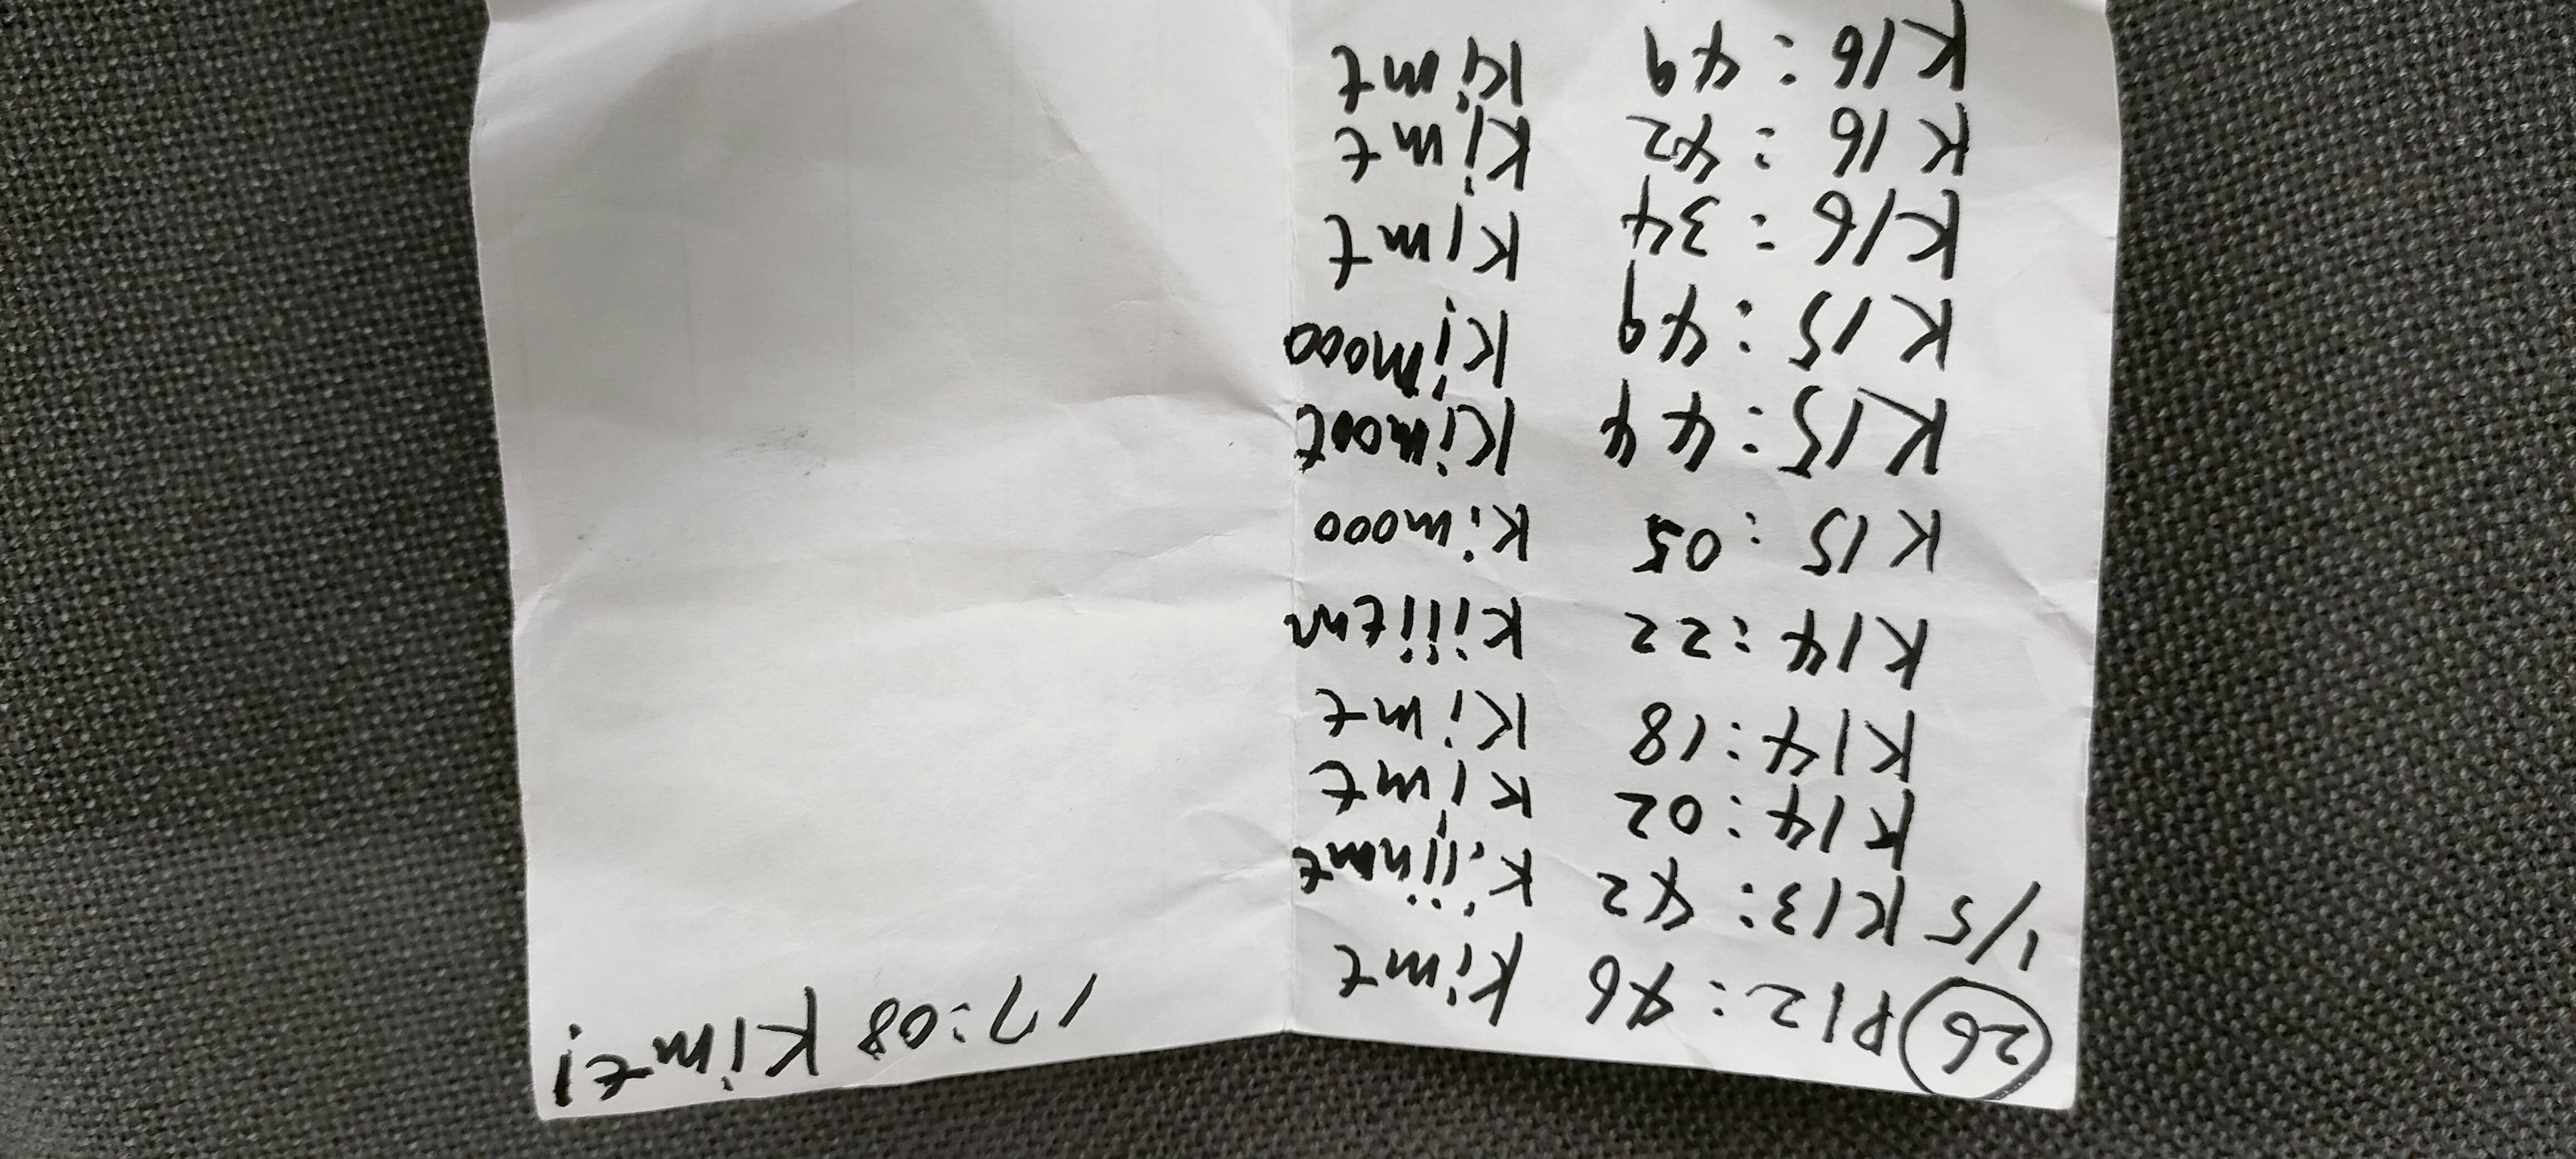 26 P12:46 Kimt
1/5 K13:42 Kiijnmt
K14:02 Kimt
K14:18 Kimt
K14:22 Kiiitnn
K15:05 Kimooo
K15:44 Kimoot
K15:49 Kimooo
K16:34 Kimt
K16:42 Kimt
K16:49 Kimt
17:08 Kimt!